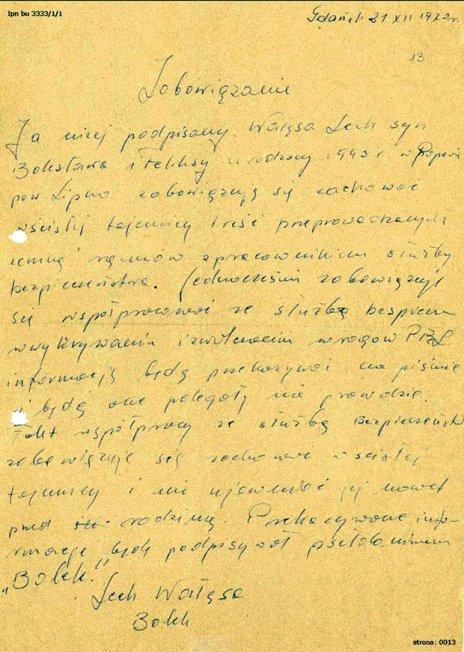 ipn bu 3333/1/1
Gdańsk 21 XII 1970 r.
13
Zobowiązanie
Ja niżej podpisany Wałęsa Lech syn
Bolesława i Feliksy urodzony 1943 r. w Popowie
pow Lipno zobowiązują się zachować
w ścisłej tajemnicy treść przeprowadzonych
zemną rozmów z pracownikiem służby
bezpieczeństwa. Jednocześnie zobowiązuję
się współpracować ze służbą bezpiecz
w wykrywaniu i zwalczaniu wrogów PRL
informację będę przekazywał na piśmie
i będą one polegały na prawdzie.
Fakt współpracy ze służbą bezpieczeńst
zobowiązuje się zachować w ścisłej
tajemnicy i nie ujawniać jej nawet
przed rodziną. Przekazywane infor
macje będę podpisywał pseudonimem
„Bolek.”
Lech Wałęsa
Bolek
strona: 0013